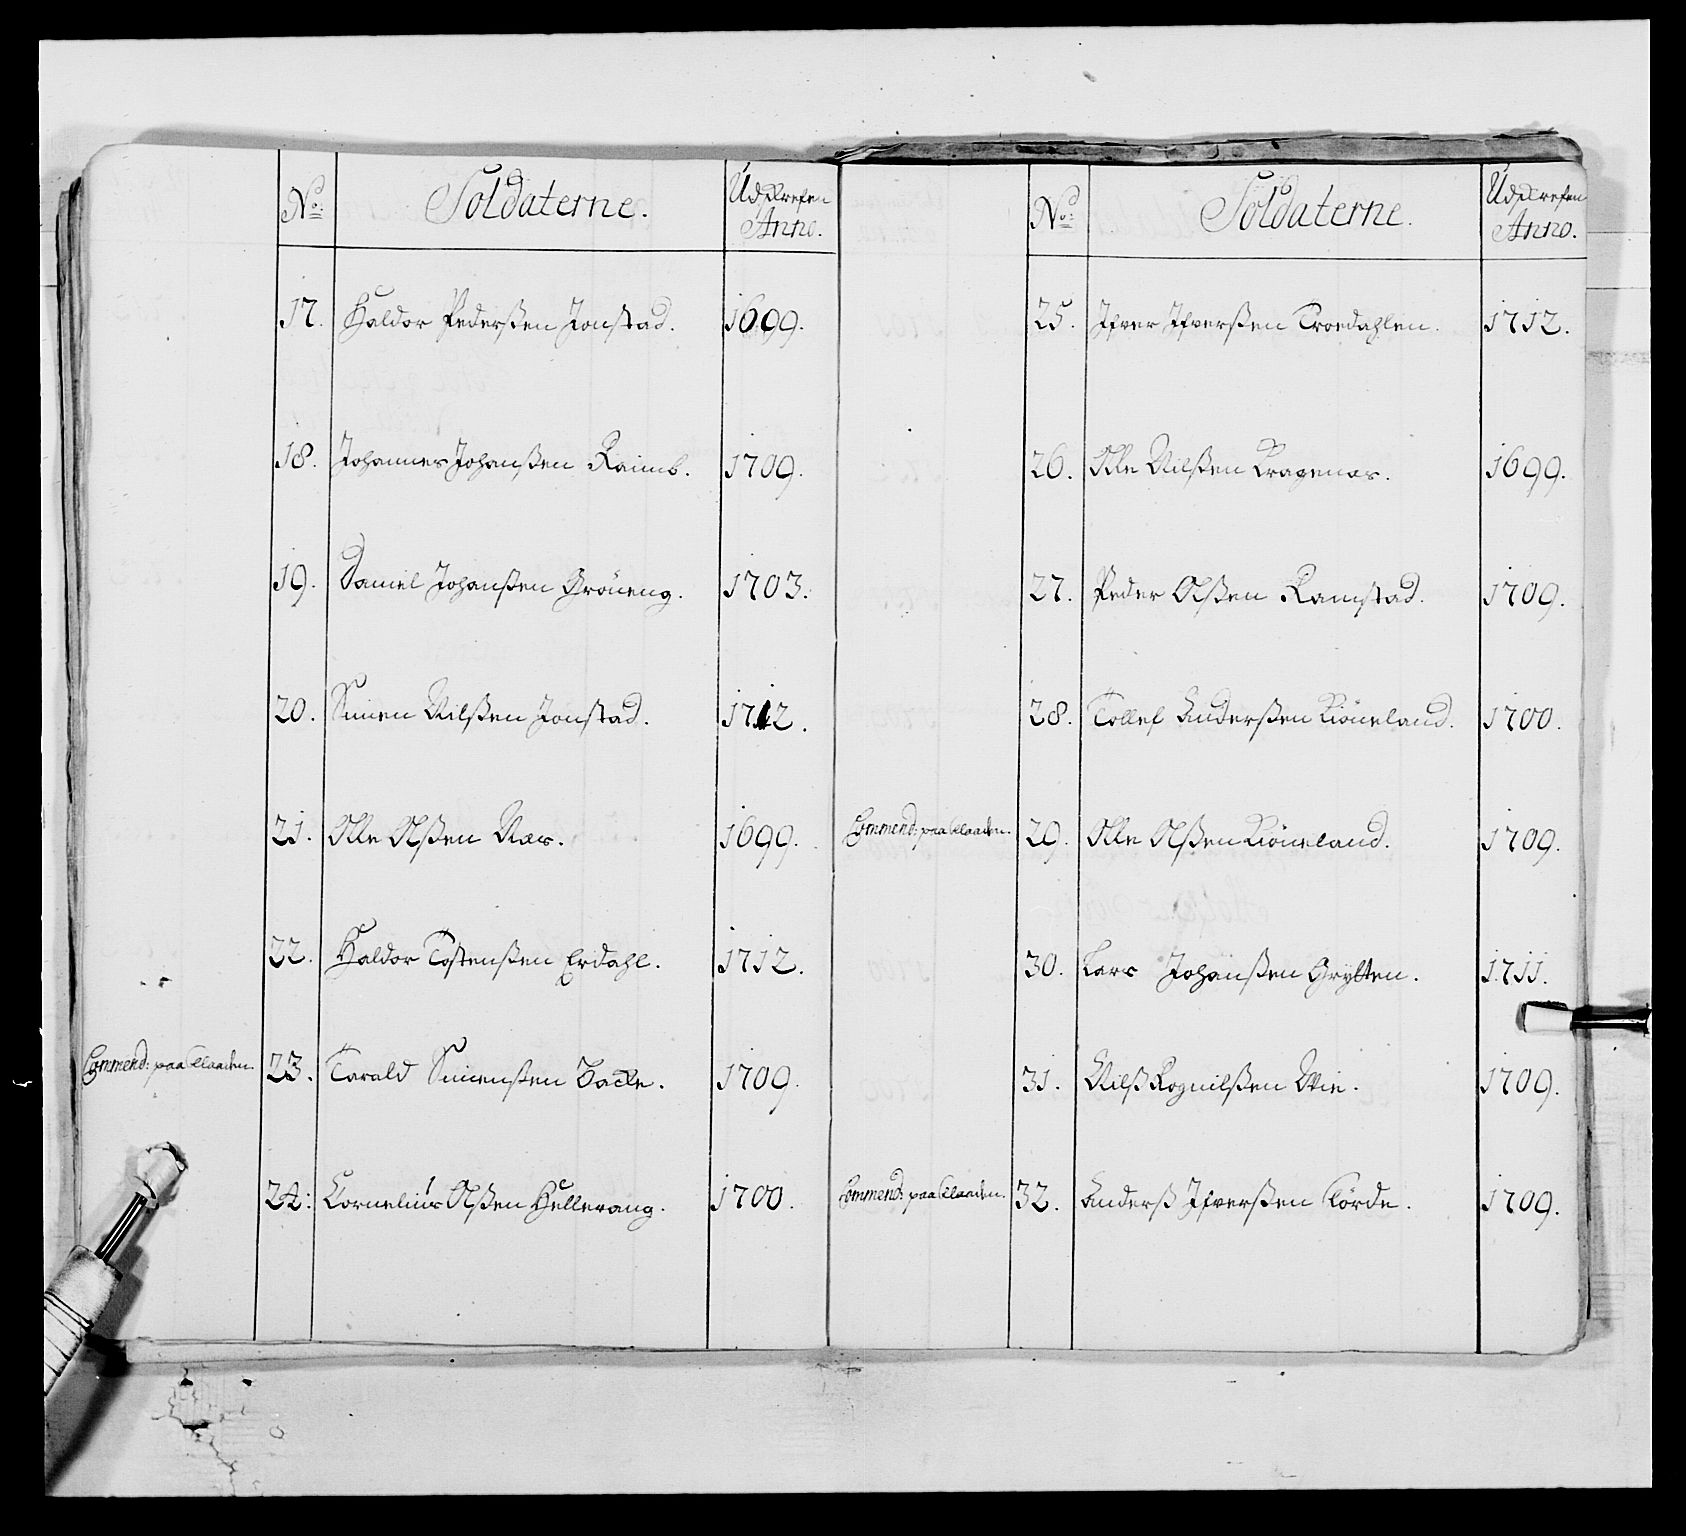 No: Soldaterne. Udskrefen Anno.
17. Haldor Pederßen Jonstad. 1699.
18. Johannes Johanßen Raimb. 1709.
19. Daniel Johanßen Gröneng. 1703.
20. Simen Nilßen Jonstad. 1712.
21. Olle Olßen Næs. 1699.
22. Haldor Tostenßen Erdahl. 1712.
Commend: paa Flaaden. 23. Tarald Simenßen Backe. 1709.
24: Cornelius Olßen Hellevang. 1700.
No: Soldaterne. Udskrefen Anno.
25. Ifver Ifverßen Troedahlen. 1712.
26. Olle Nilßen Kragenæs. 1699.
27. Peder Olßen Ramstad. 1709.
28. Tollef Anderßen Kiöneland. 1700.
Commend: paa Flaaden. 29. Olle Olßen Kiöneland. 1709.
30. Lars Johanßen Grytten. 1711.
31. Nilß Rognilßen Wie. 1709.
Commend: paa Flaaden. 32. Anderß Ifverßen Törde. 1709.